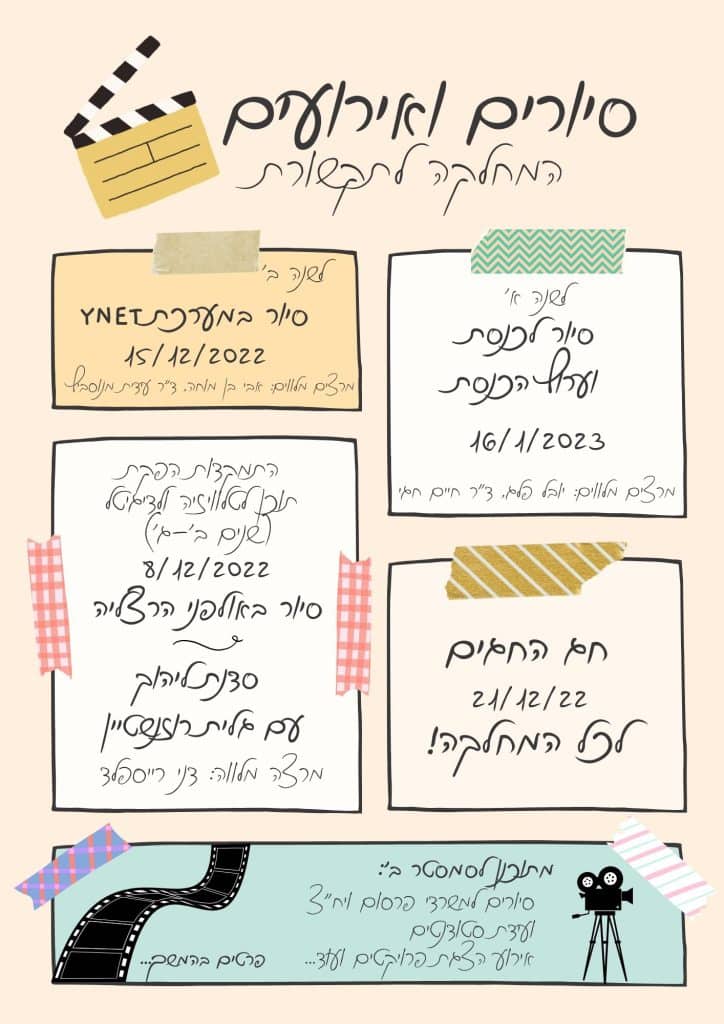 סיורים ואירועים
המחלקה לתקשורת
לשנה א'
סיור לכנסת
וערוץ הכנסת
16/1/2023
מרצים מלווים: יובל פלג, ד"ר חיים חגי
לשנה ב'
סיור במערכת YNET
15/12/2022
מרצים מלווים: אבי בן מוחה, ד"ר עידית מנוסביץ
התמקדות הפקת
תוכן לטלוויזיה ולדיגיטל
(שנים ב'-ג')
8/12/2022
סיור באולפני הרצליה
סדנת ליהוק
עם גלית רוזנשטיין
מרצה מלווה: דני רייספלד
חג החגים
21/12/22
לכל המחלקה!
מתוכנן לסמסטר ב':
סיורים למשרדי פרסום ויח"צ
ועידת סטודנטים
אירוע הצגת פרויקטים ועוד...
פרטים בהמשך...